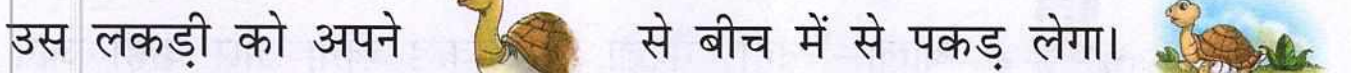 उस लकड़ी को अपने से बीच में से पकड़ लेगा।